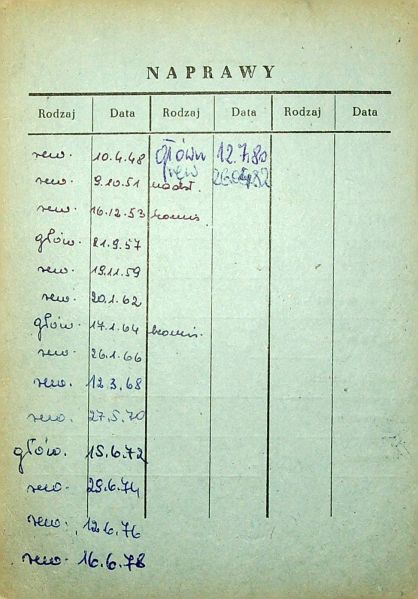 NAPRAWY
Rodzaj Data Rodzaj Data Rodzaj Data
rew. 10.4.48 główn 12.7.80
rew. 9.10.51 nadzł. rew
rew. 16.12.53
głów. 21.9.57
rew. 19.11.59
rew. 20.1.62
głów. 17.1.64
rew. 26.1.66
rew. 12.3.68
rew. 27.5.70
głów. 15.6.72
rew. 29.6.74
rew. 12.6.76
rew. 16.6.78